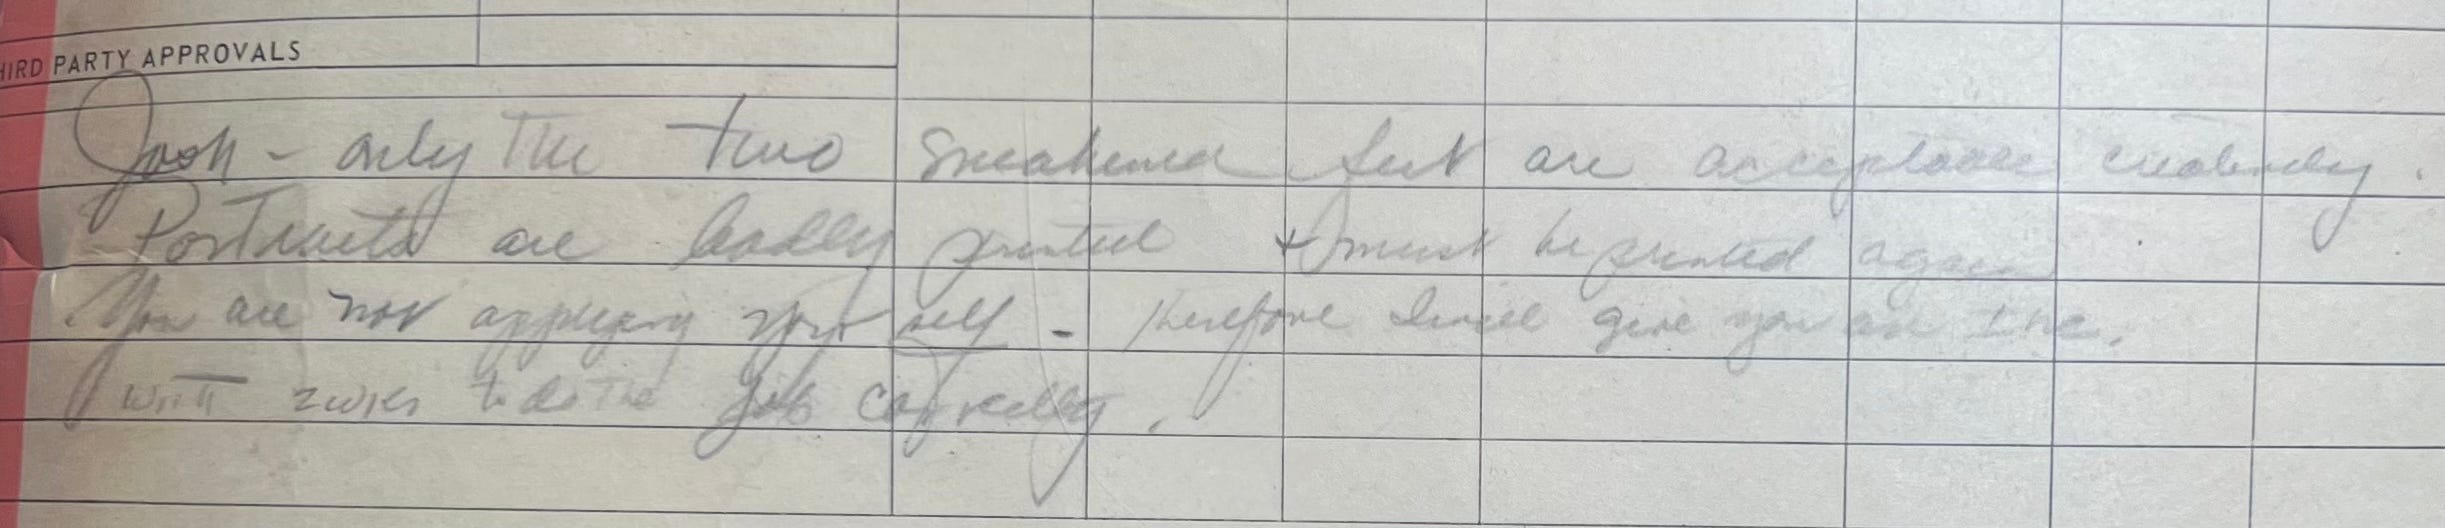 HIRD PARTY APPROVALS
Josh - only The two sneakered feet are acceptable creatively.
Portraits are badly printed + must be printed again
You are not applying yourself - therefore I will give you an Inc.
with 2 wks to do The job correctly.